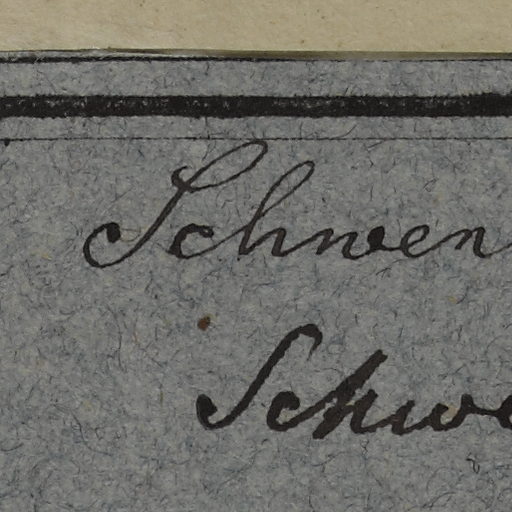 Schwen
Schwe